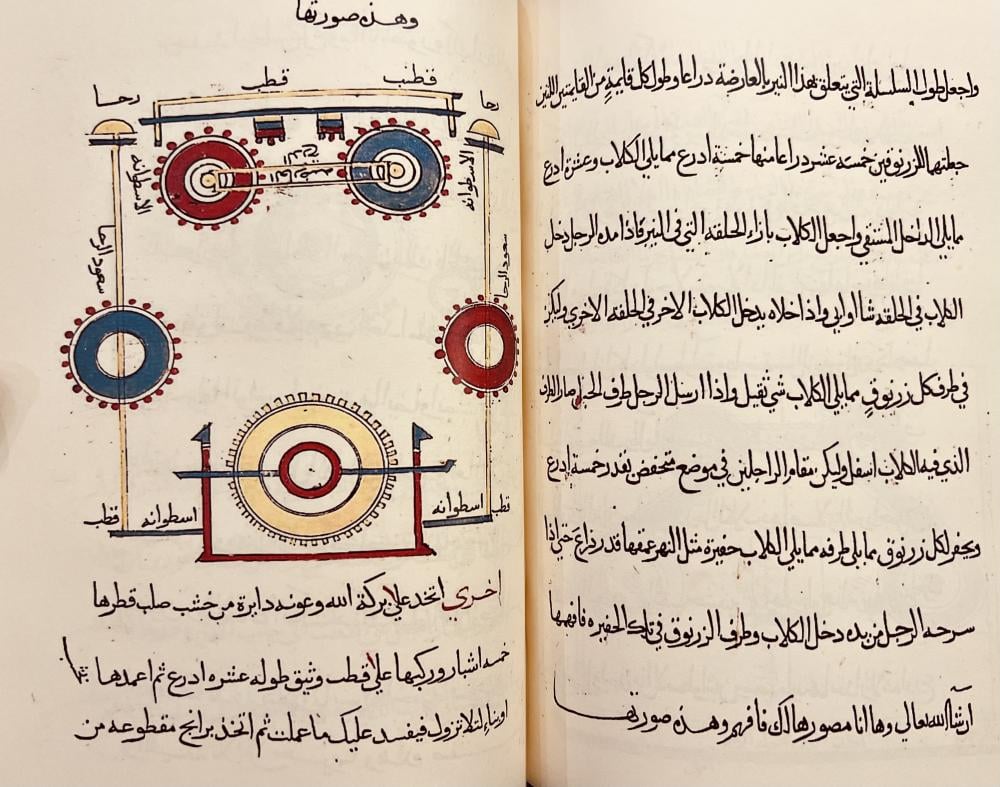 واجعل طول السلسلة التي يتعلق بهذا النير بالعارضة دراعا وطول كل قايمة من القايمتين اللتين
جعلتها اللزرنوقين خمسة عشر دراعا منها خمسة ادرع مما يلي الكلاب وعشرة ادرع
مما يلي الداخل المستقي واجعل الكلاب بازاء الحلقه التي في النير فاذا مده الرجل دخل
الكلاب في الحلقه شا اوابي واذا خلاه يدخل الكلاب الاخر في الحلقه الاخري وليكن
في طرف كل زرنوق مما يلي الكلاب شي ثقيل واذا ارسل الرجل طرف الحبل صار الطرف
الذي فيه الكلاب اسفل وليكن مقام الراجلين في موضع منخفض بقدر خمسة ادرع
ويحفر لكل زرنوق مما يلي طرفه مما يلي الكلاب حفيرة مثل النهر عمقها قدر ذراع حتي اذا
سرحه الرجل من يده دخل الكلاب وطرف الزرنوق في تلك الحفيره فافهمها
ان شآ الله تعالي وها انا مصورها لك فافهم وهذه صورتها
وهذه صورتها
قطب
قطب
رحا
رحا
الاسطوانه
الاسطوانه
سعود الرحا
سعود الرحا
قطب
اسطوانه
اسطوانه
قطب
اخري اتخد علي بركة الله وعونه دايرة من خشب صلب قطرها
خمسه اشبار وركبها علي قطب وثيق طوله عشره ادرع ثم اعمدها
اوتاد لئلا تزول فيفسد عليك ما عملت ثم اتخد برانج مقطوعه من